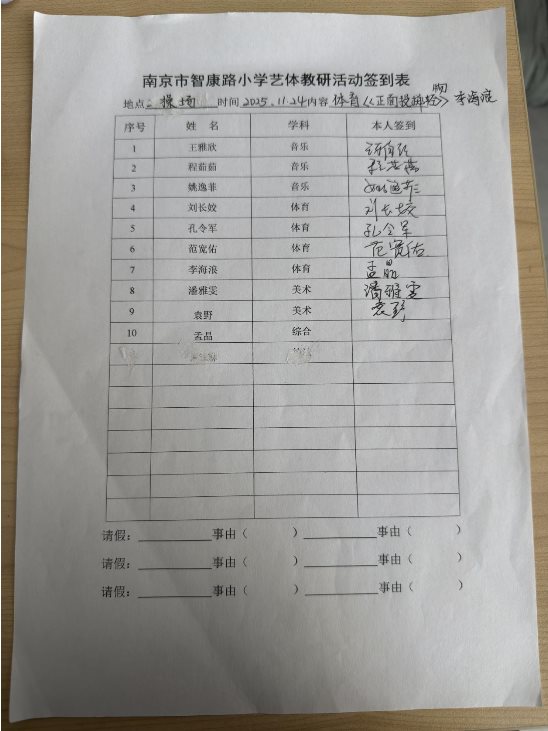 南京市智康路小学艺体教研活动签到表
地点:操场 时间2025.11.24内容 体育《正面投掷轻物》李海浪
序号 姓名 学科 本人签到
1 王雅欣 音乐
2 程茹茹 音乐 程茹茹
3 姚逸菲 音乐 姚逸菲
4 刘长姣 体育 刘长姣
5 孔令军 体育 孔令军
6 范宽佑 体育 范宽佑
7 李海浪 体育 孟晶
8 潘雅雯 美术 潘雅雯
9 袁野 美术 袁野
10 孟晶 综合
请假:____________事由( )____________事由( )
请假:____________事由( )____________事由( )
请假:____________事由( )____________事由( )